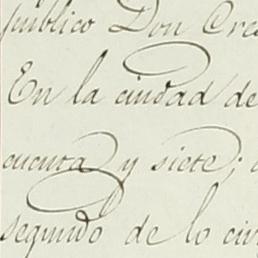 público Don Cre
En la ciudad de
cuenta y siete;
segundo de lo civ